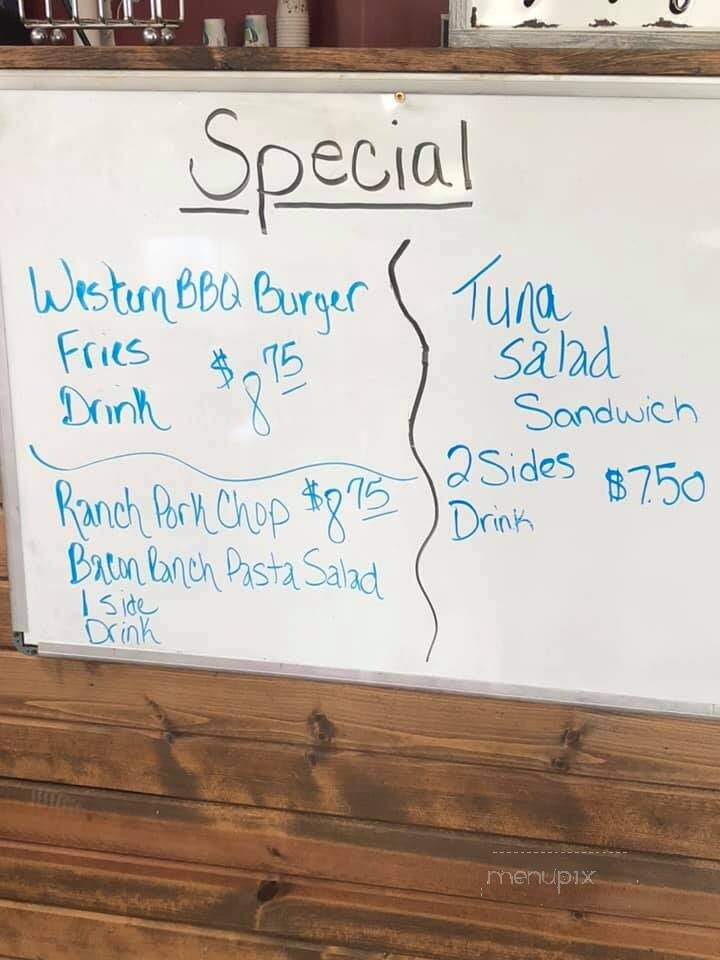 Special
Western BBQ Burger
Fries
Drink
$8.75
Ranch Pork Chop $8.75
Bacon Ranch Pasta Salad
1 Side
Drink
Tuna
Salad
Sandwich
2 Sides $7.50
Drink
menupix